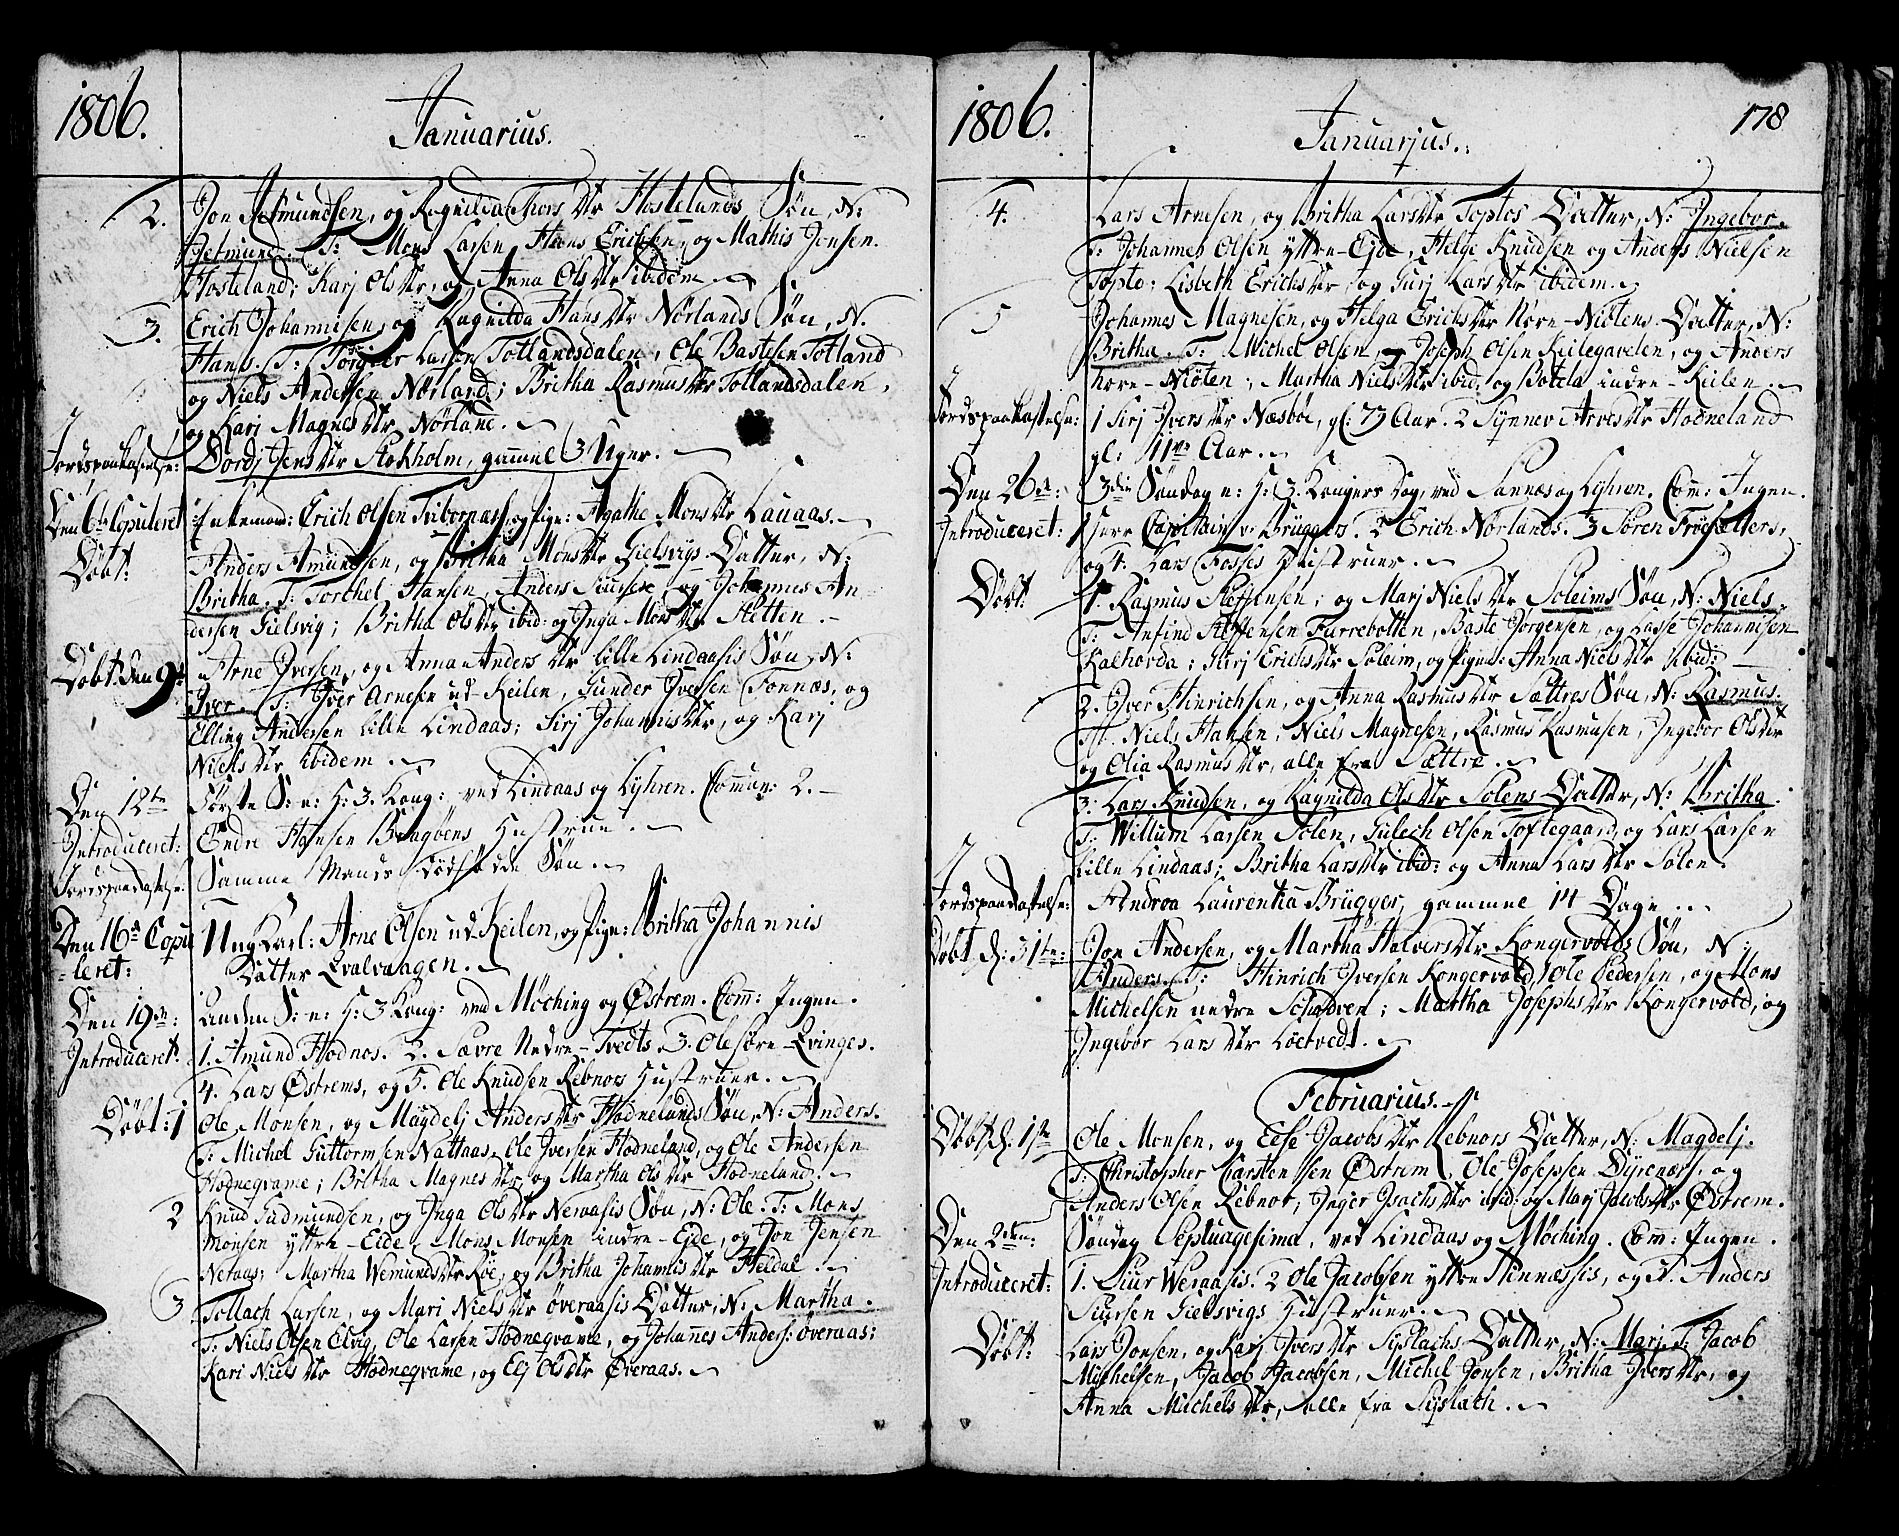 1806.
Januarius.
2. Jon Jetmundsen, og Ragnilda Thors Dtr Hostelands Søn, N:
Jetmund. T: Mons Larsen, Hans Erichsen, og Mathis Jensen
Hosteland; Karj Ols Dtr, og Anna Ols Dtr ibidem.
3. Erich Johannisen, og Ragnilda Hans Dtr Nørlands Søn, N.
Hans. T: Torgier Larsen Totlandsdalen, Ole Bastesen Totland
og Niels Andersen Nørland; Britha Rasmus Dtr Totlandsdalen,
og Kari Magnes Dtr Nørland.
Jordspaakastelse: Dordj Jens Dtr Stokholm, gammel 3 Uger.
Den 6te Copuleret Enkemand: Erich Olsen, og Pige: Agathe Mons Dtr Lauaas.
Døbt: Anders Amundsen, og Britha Mons Dtr Gielsvigs Datter, N:
Britha. T: Torchel Hansen, Anders Siursen, og Johannes An-
dersen Gielsvig; Britha Ols Dtr ibid: og Inga Mons Dtr Hetten.
Døbt den 9de Arne Iversen, og Anna Anders Dtr lille Lindaasis Søn, N:
Iver. T: Iver Arnesen ud-Keilen, Gunder Iversen Fonnæs, og
Elling Andersen lille Lindaas; Sirj Johannis Dtr, og Karj
Niels Dtr ibidem.
Den 12te Første S: e: H: 3. Kong: ved Lindaas og Lyhren. Commun: 2.
Introduceret: Endre Hansen Hustrue.
Jordspaakastelse: Samme Mands dødfødde Søn.
Den 16de Copu Ung Karl: Arne Olsen ud Keilen, og Pige: Britha Johannis
-leret: Datter Qvalvaagen.
Den 19de: Anden S: e: H: 3 Kong: ved Møching og Østrem. Comm: Ingen.
Introduceret: 1. Amund Hodnes. 2. Sævre Nedre-Tvedts. 3. Ole søre-Qvinges.
4. Lars Østrems, og 5. Ole Knudsen Rebnors Hustruer.
Døbt: 1 Ole Monsen, og Magdelj Anders Dtr Hodnelands Søn, N: Anders.
T: Michel Guttormsen Nattaas, Ole Iversen Hodneland, og Ole Andersen
Hodneqvame; Britha Magnes Dtr, og Martha Ols Dtr Hodneland.
2 Knud Gudmundsen, og Inga Ols Dtr Neraasis Søn, N: Ole. T: Mons
Monsen yttre-Eide, Mons Monsen indre-Eide, og Jon Jensen
Netaas; Martha Wemunds Dtr Roe, og Britha Johannis Dtr Heldal.
3 Tollach Larsen, og Mari Niels Dtr øveraasis Datter, N: Martha.
T: Niels Olsen Elvig, Ole Larsen Hodneqvame, og Johannes Anders: øveraas;
Kari Niels Dtr Hodneqvame, og Elj Ols Dtr Øveraas.
1806.
Januarjus.
178
4. Lars Arnesen, og Britha Lars Dtr Toptes Datter, N: Ingebor.
T: Johannes Olsen yttre-Ejde, Helge Knudsen og Anders Nielsen
Topte; Lisbeth Erichs Dtr og Gurj Lars Dtr ibidem.
5 Johannes Magnesen, og Helga Erichs Dtr Nore-Niøtens Datter, N:
Britha. T: Michel Olsen, og Joseph Olsen Keilegavelen, og Anders
nore-Niøten; Martha Niels Dtr ibid: og Botela indre-Keilen.
Jordspaakastelse: 1 Sirj Ivers Dtr Næsbøe, gl: 73 Aar. 2 Synnev Arves Dtr Hodneland
gl: 11ve Aar.
Den 26de: 3die Søndag e: H: 3. Kongers Dag, ved Sannæs og Lyhren. Com: Ingen.
Introduceret: 1 Herr Capitain v: Brüggers. 2 Erich Nørlands. 3 Søren Frøsætters,
og 4. Lars Fosses Hustruer.
Døbt: 1. Rasmus Steffensen, og Marj Niels Dtr Soleims Søn, N: Niels.
T: Anfind Steffensen Furrebotten, Baste Jørgensen, og Lasse Johannisen
Kalhorda; Gurj Erichs Dtr Soleim, og Pigen Anna Niels Dtr ibid:
2. Iver Hinrichsen, og Anna Rasmus Dtr Sættres Søn, N: Rasmus.
T. Niels Hansen, Niels Magnesen, Rasmus Rasmusen, Ingebor Ols Dtr
og Olia Rasmus Dtr, alle fra Sættre.
3. Lars Knudsen, og Ragnilda Ols Dtr Solens Datter, N: Britha.
T: Willum Larsen Solen, Gulech Olsen Toftegaard, og Lars Larsen
Lille Lindaas; Britha Lars Dtr ibid: og Anna Lars Dtr Solen.
Jordspaakastelse: Andrea Laurentia Brügger, gammel 14 Dage.
Døbt d: 31te: Jon Andersen, og Martha Halvers Dtr Kongervolds Søn, N:
Anders. T: Hinrich Iversen Kongervold, Ole Pedersen, og Mons
Michelsen nedre Schodven; Martha Josephs Dtr Kongervold, og
Ingebor Lars Dtr Løetvedt.
Februarius.
Døbt d: 1ste Ole Monsen, og Else Jacobs Dtr Rebnors Datter, N: Magdelj.
T: Christopher Carstensen Østrem, Ole Josephsen Dyrenæs, og
Anders Olsen Rebnor; Inger Isachs Dtr ibid: og Marj Jacobs Dtr Østrem.
Den 2den: Søndag Septuagesima, ved Lindaas og Møching. Com: Ingen.
Introduceret: 1. Siur Weraasis. 2 Ole Jacobsen yttre Hinnæsis, og 3. Anders
Siursen Gielsvigs Hustruer.
Døbt: Lars Jonsen, og Karj Ivers Dtr Syslachs Datter, N: Marj. T: Jacob
Michelsen, Jacob Jacobsen, Michel Jonsen, Britha Ivers Dtr, og
Anna Michels Dtr, alle fra Syslach.